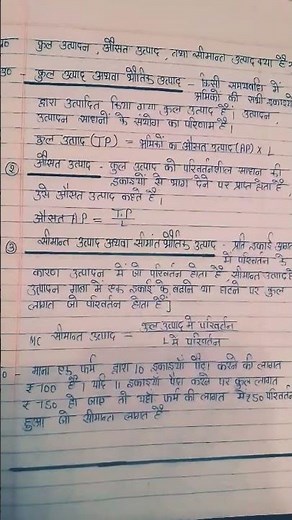 प्र० कुल उत्पादन, औसत उत्पाद, तथा सीमान्त उत्पाद क्या है?
उ० - कुल उत्पाद अथवा भौतिक उत्पाद - किसी समयावधि में
श्रमिकों की सभी इकाइयों
द्वारा उत्पादित किया गया कुल उत्पाद है। उत्पादन,
उत्पादन साधनों के संयोग का परिणाम है।
कुल उत्पाद (TP) = श्रमिकों का औसत उत्पाद (AP) × L
② औसत उत्पाद - कुल उत्पाद को परिवर्तनशील साधन की
इकाइयों से भाग देने पर प्राप्त होता है,
उसे औसत उत्पाद कहते हैं।
औसत AP = TP/L
③ सीमान्त उत्पाद अथवा सीमांत भौतिक उत्पाद - प्रति इकाई
में परिवर्तन के
कारण उत्पादन में जो परिवर्तन होता है सीमान्त उत्पाद है
उत्पादन माना में एक इकाई के बढ़ाने या घटाने पर कुल
लागत जो परिवर्तन होता है]
MC सीमान्त उत्पाद = कुल उत्पाद में परिवर्तन / L में परिवर्तन
० - माना एक फर्म द्वारा 10 इकाइयाँ पैदा करने की लागत
₹ 700 है। यदि 11 इकाइयाँ पैदा करने पर कुल लागत
₹ 750 हो जाए तो यहाँ फर्म की लागत में ₹50 परिवर्तन
हुआ जो सीमान्त लागत है